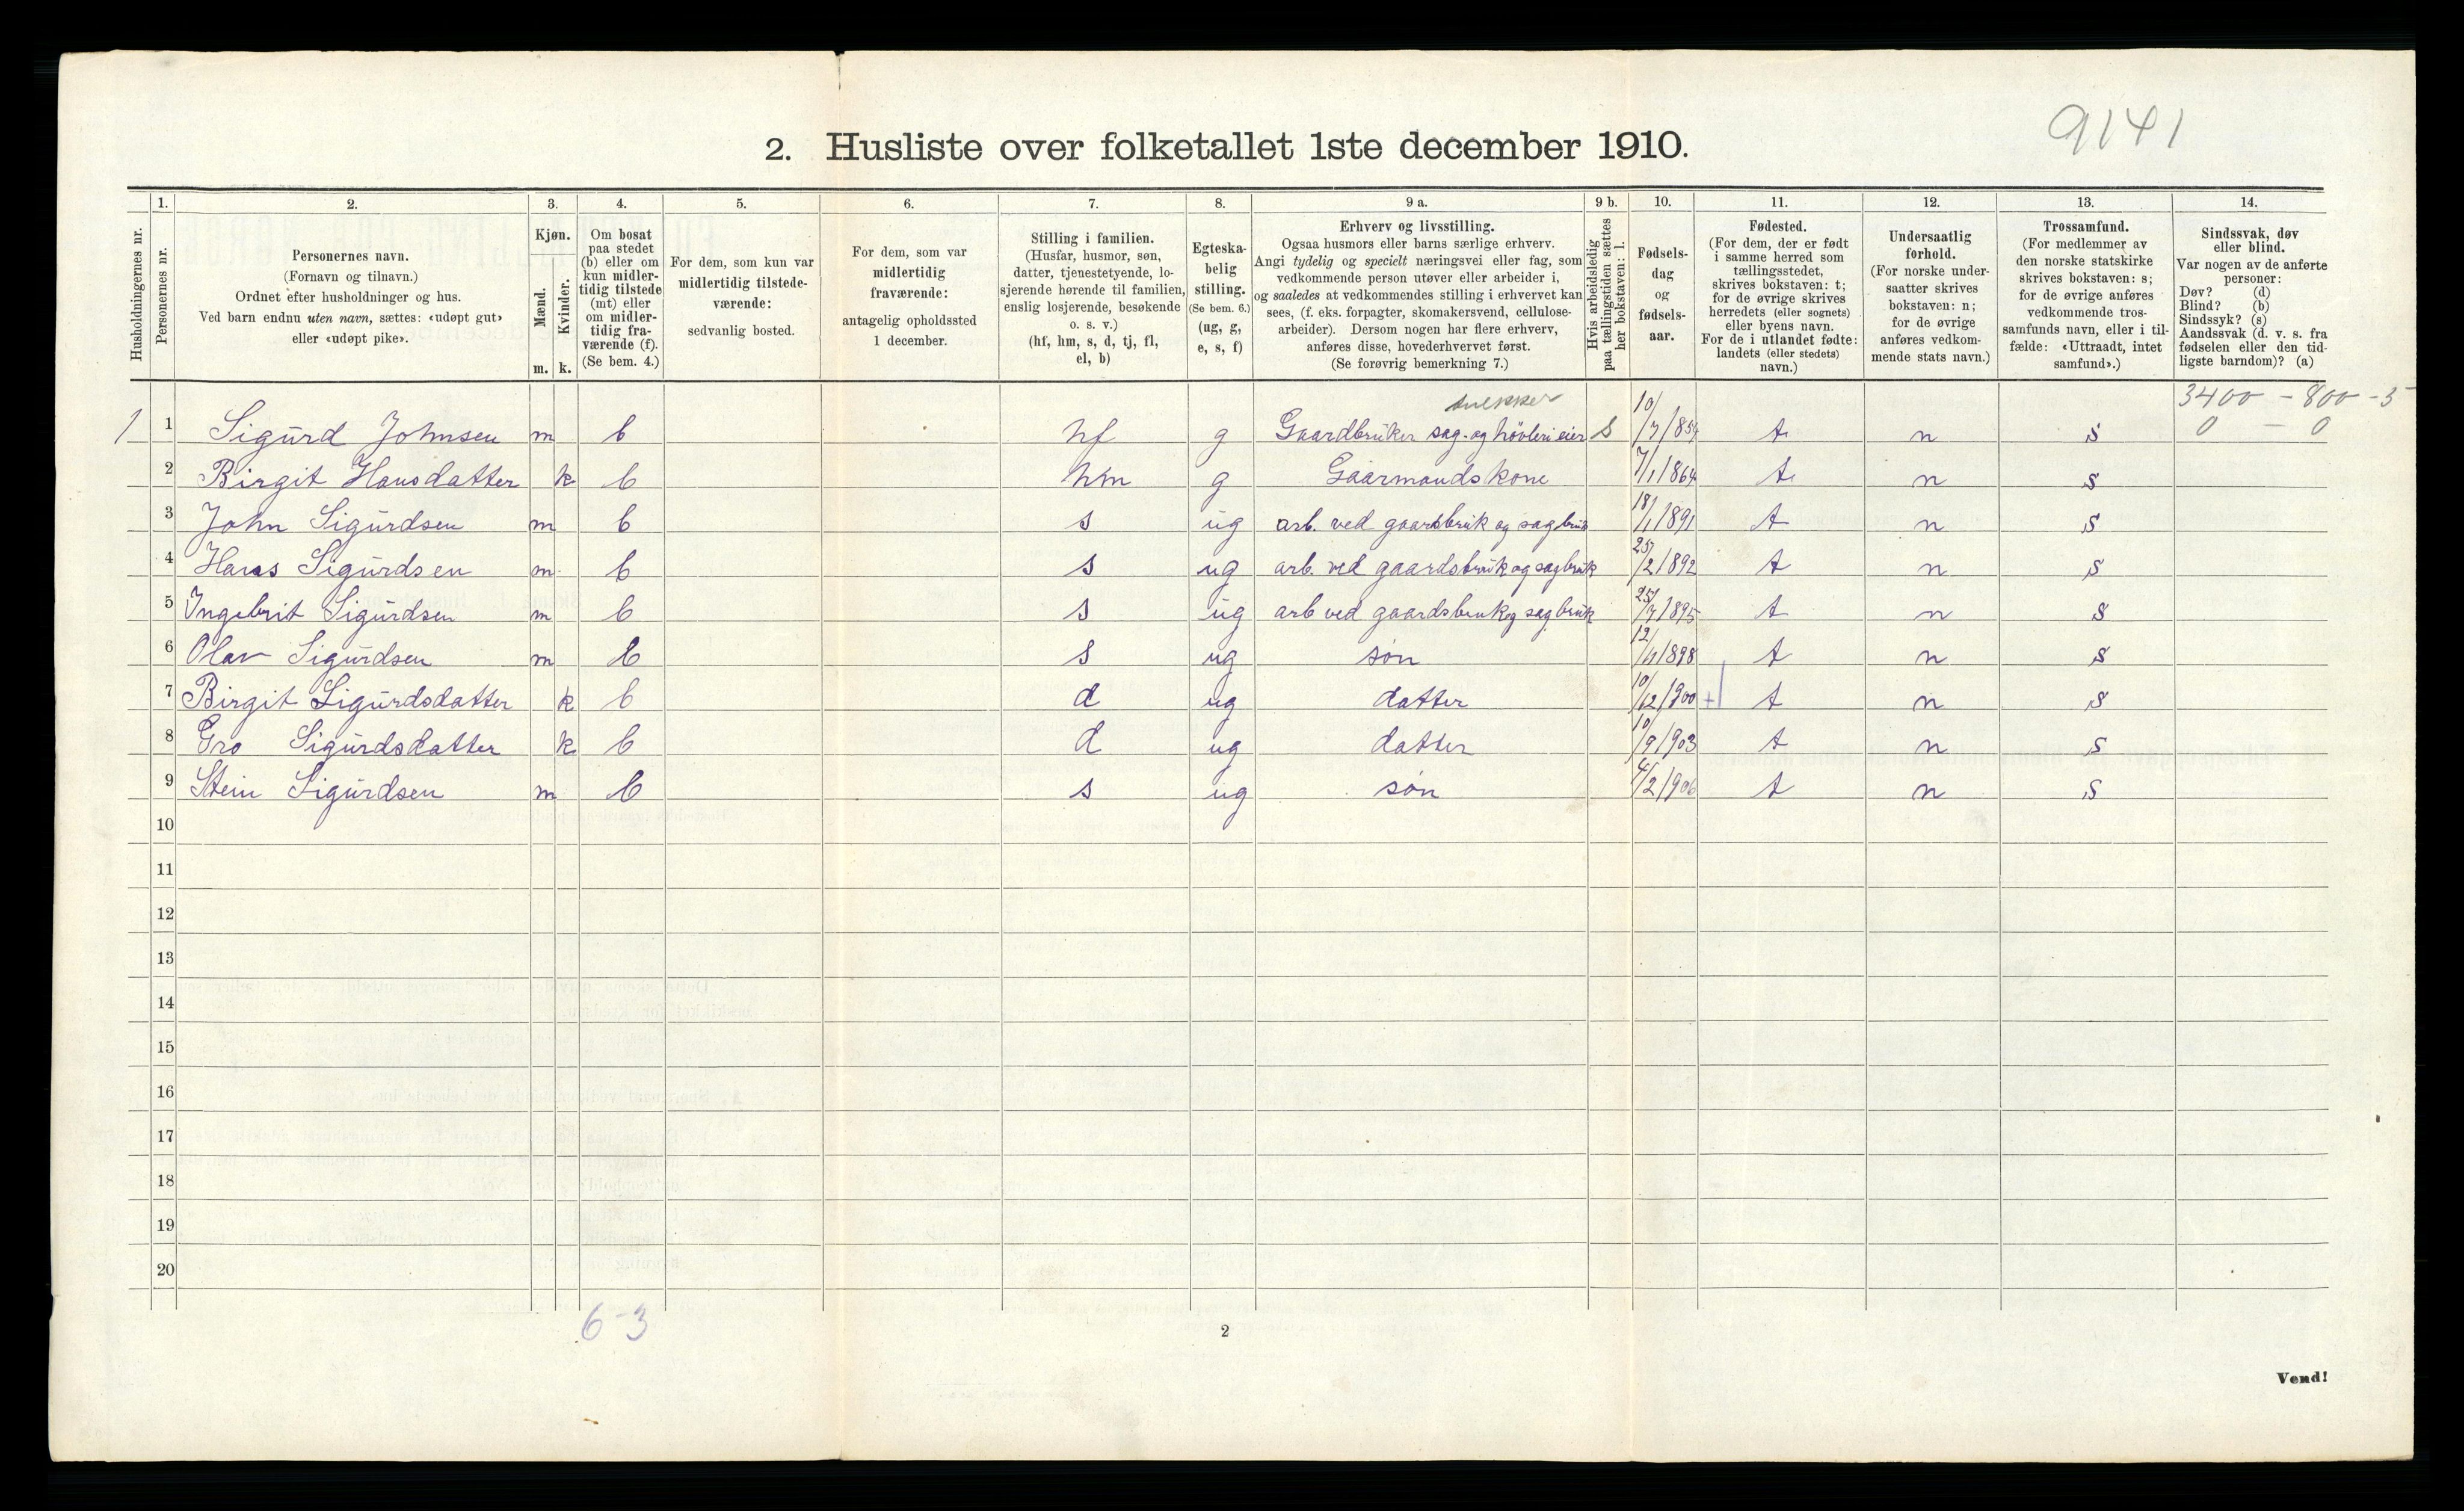 9141
2. Husliste over folketallet 1ste december 1910.
1. 2. 3. 4. 5. 6. 7. 8. 9 a. 9 b. 10. 11. 12. 13. 14.
Husholdningernes nr.
Personernes nr.
Personernes navn.
(Fornavn og tilnavn.)
Ordnet efter husholdninger og hus.
Ved barn endnu uten navn, sættes: «udøpt gut»
eller «udøpt pike».
Kjøn.
Mænd.
Kvinder.
m. k.
Om bosat
paa stedet
(b) eller om
kun midler-
tidig tilstede
(mt) eller
om midler-
tidig fra-
værende (f).
(Se bem. 4.)
For dem, som kun var
midlertidig tilstede-
værende:
sedvanlig bosted.
For dem, som var
midlertidig
fraværende:
antagelig opholdssted
1 december.
Stilling i familien.
(Husfar, husmor, søn,
datter, tjenestetyende, lo-
sjerende hørende til familien,
enslig losjerende, besøkende
o. s. v.)
(hf, hm, s, d, tj, fl,
el, b)
Egteska-
belig
stilling.
(Se bem. 6.)
(ug, g,
e, s, f)
Erhverv og livsstilling.
Ogsaa husmors eller barns særlige erhverv.
Angi tydelig og specielt næringsvei eller fag, som
vedkommende person utøver eller arbeider i,
og saaledes at vedkommendes stilling i erhvervet kan
sees, (f. eks. forpagter, skomakersvend, cellulose-
arbeider). Dersom nogen har flere erhverv,
anføres disse, hovederhvervet først.
(Se forøvrig bemerkning 7.)
Hvis arbeidsledig
paa tællingstiden sættes
her bokstaven: l.
Fødsels-
dag
og
fødsels-
aar.
Fødested.
(For dem, der er født
i samme herred som
tællingsstedet,
skrives bokstaven: t;
for de øvrige skrives
herredets (eller sognets)
eller byens navn.
For de i utlandet fødte:
landets (eller stedets)
navn.)
Undersaatlig
forhold.
(For norske under-
saatter skrives
bokstaven: n;
for de øvrige
anføres vedkom-
mende stats navn.)
Trossamfund.
(For medlemmer av
den norske statskirke
skrives bokstaven: s;
for de øvrige anføres
vedkommende tros-
samfunds navn, eller i til-
fælde: «Uttraadt, intet
samfund».)
Sindssvak, døv
eller blind.
Var nogen av de anførte
personer:
Døv? (d)
Blind? (b)
Sindssyk? (s)
Aandssvak (d. v. s. fra
fødselen eller den tid-
ligste barndom)? (a)
snekker 3400 - 800 - 5
1 1 Sigurd Johnsen m b hf g Gaardbruker sag- og høvleri eier S 10/7/854 t n s 0 - 0
2 Birgit Hansdatter k b hm g Gaarmands kone 7/1 1864 t n s
3 John Sigurdsen m b s ug arb. ved gaardsbruk og sagbruk 18/1 1891 t n s
4 Hans Sigurdsen m b s ug arb. ved gaardsbruk og sagbruk 25/2 1892 t n s
5 Ingebrit Sigurdsen m b s ug arb ved gaardsbruk og sagbruk 25/7 1895 t n s
6 Olav Sigurdsen m b s ug søn 12/ 1898 t n s
7 Birgit Sigurdsdatter k b d ug datter 10/12 1900 + t n s
8 Gro Sigurdsdatter k b d ug datter 10/9 1903 t n s
9 Stein Sigurdsen m b s ug søn 4/2 1906 t n s
10
11
12
13
14
15
16
17
18
19
20
6-3
2
Vend!